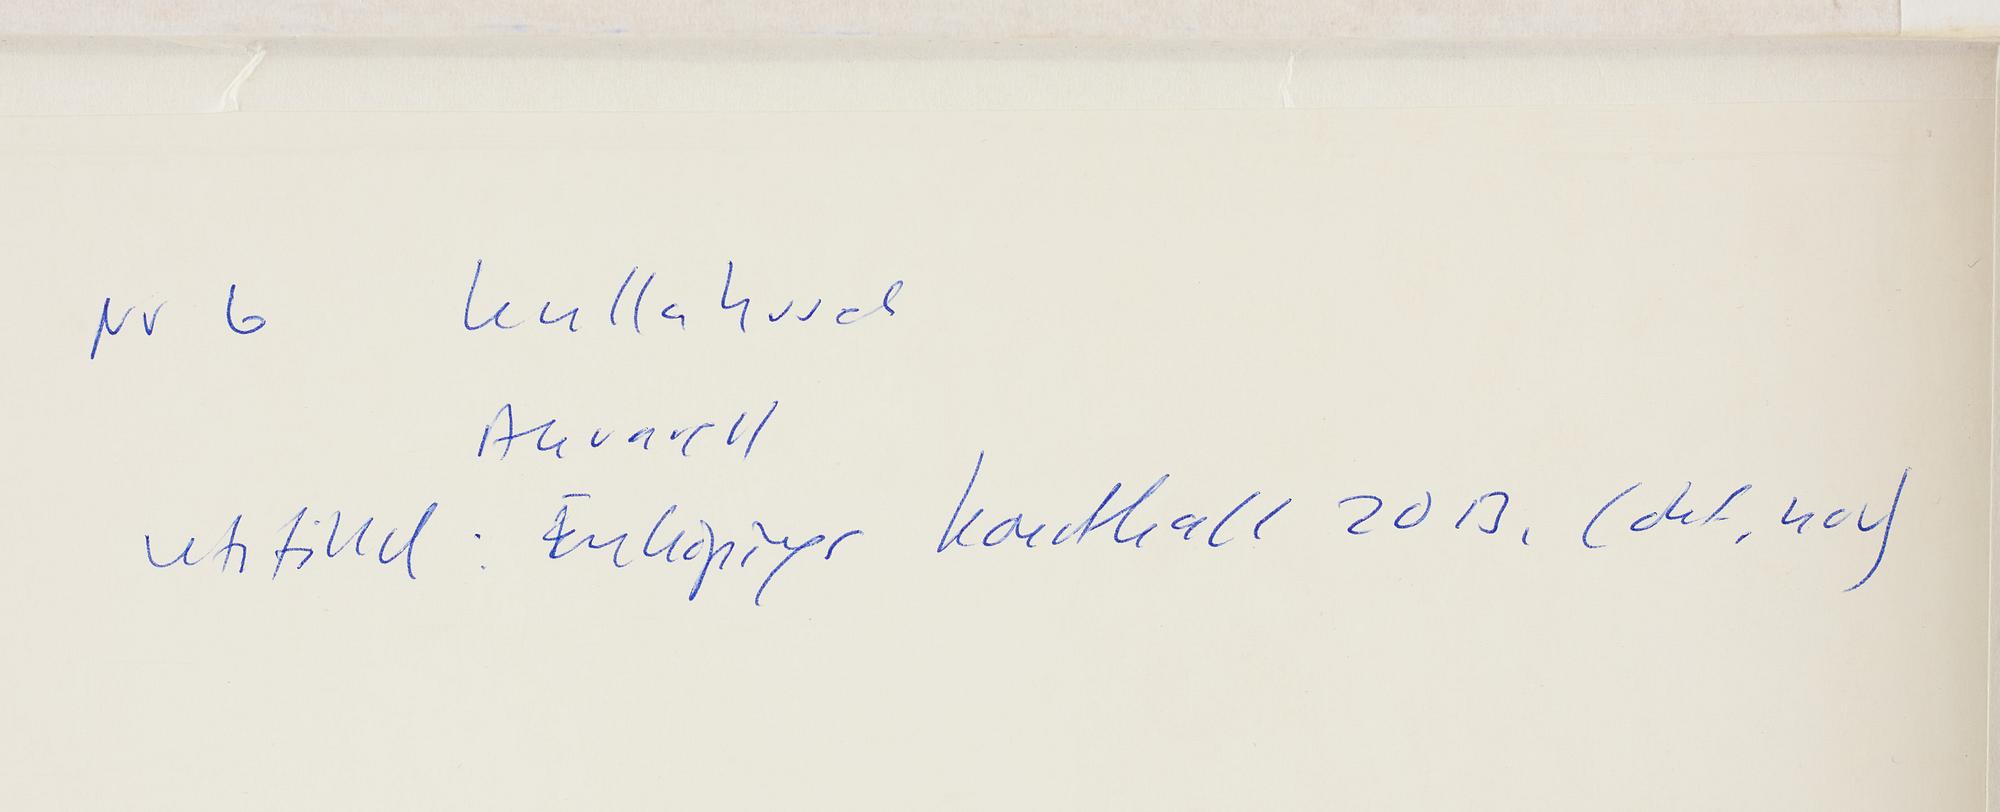 Nr 6 Kullahuset
Akvarell
utställd : Enköpings Konsthall 2013. (okt, nov)